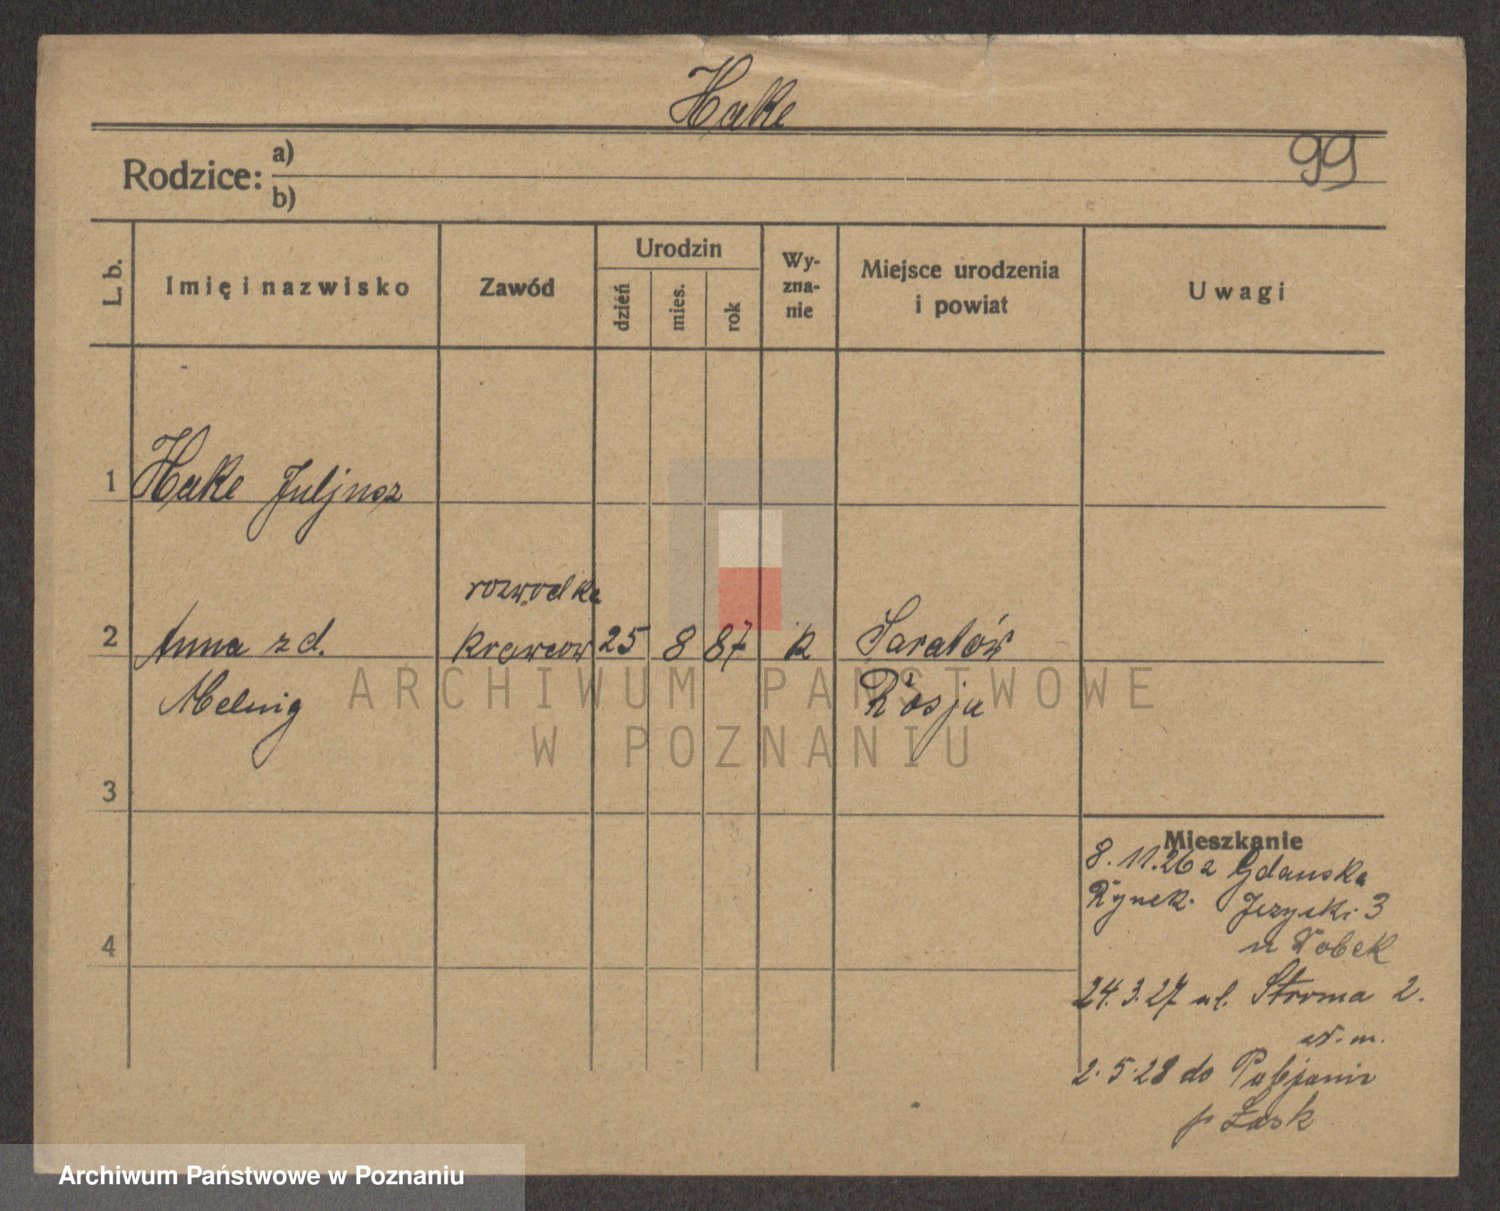 Hake
99
Rodzice: a)
b)
L. b.
Imię i nazwisko
Zawód
Urodzin
dzień
mies.
rok
Wy-
zna-
nie
Miejsce urodzenia
i powiat
Uwagi
1 Hake Juljusz
rozwodka
2 Anna zd. krawcow 25 8 87 k Saratów
Melnig Rosja
ARCHIWUM PAŃSTWOWE
W POZNANIU
3
Mieszkanie
8.11.26 z Gdańska
Rynek Jezycki 3
4
u Nobek
24.3.27 ul. Stroma 2.
w. m.
2.5.28 do Pabjanic
p Łask
Archiwum Państwowe w Poznaniu